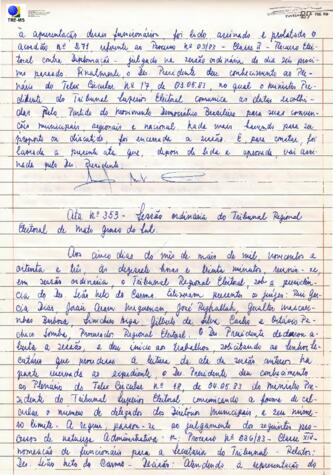 TRE-MS
à aposentação deste funcionário, foi lido, assinado e prolatado o
acórdão nº 271, referente ao Processo nº 03/83 - Classe II - Recurso Elei-
toral contra Diplomação - julgado na sessão ordinária do dia seis pró-
ximo passado. Finalmente, o Des. Presidente deu conhecimento ao Ple-
nário do Telex Circular nº 17, de 03.05.83, no qual o Ministro Pre-
sidente do Tribunal Superior Eleitoral comunica as datas escolhi-
das pelo Partido do Movimento Democrático Brasileiro para suas conven-
ções municipais, regionais e nacional. Nada mais havendo para ser
proposto ou discutido foi encerrada a sessão. E, para constar, foi
lavrada a presente ata que, depois de lida e aprovada, vai assi-
nada pelo Des. Presidente.
Ata nº 353 - Sessão ordinária do Tribunal Regional
Eleitoral de Mato Grosso do Sul.
Aos cinco dias do mês de maio de mil, novecentos e
oitenta e três, às dezessete horas e trinta minutos, reuniu-se,
em sessão ordinária, o Tribunal Regional Eleitoral, sob a presidên-
cia do Des. Leão Neto do Carmo. Estiveram presentes os juízes: Rui Gar-
cia Dias, José
nhas Barbosa, Gilberto da Silva Castro e
Procurador Regional Eleitoral. O Des. Presidente declarou a-
berta a sessão e deu início aos trabalhos solicitando ao senhor Se-
cretário que procedesse à leitura da ata da sessão anterior. Na
parte reservada ao expediente, o Des. Presidente deu conhecimento
ao Plenário do Telex Circular nº 18, de 04.05.83 do Ministro Pre-
sidente do Tribunal Superior Eleitoral comunicando a forma de cal-
cular o número de delegados dos Diretórios Municipais, e seu máxi-
mo limite. A seguir, passou-se ao julgamento do seguinte pro-
cesso de natureza Administrativa: Processo nº 036/83 - Classe XIV
nomeação de funcionários para a Secretaria do Tribunal - Relator:
Des. Leão Neto do Carmo - Decisão: Atendendo à representação do